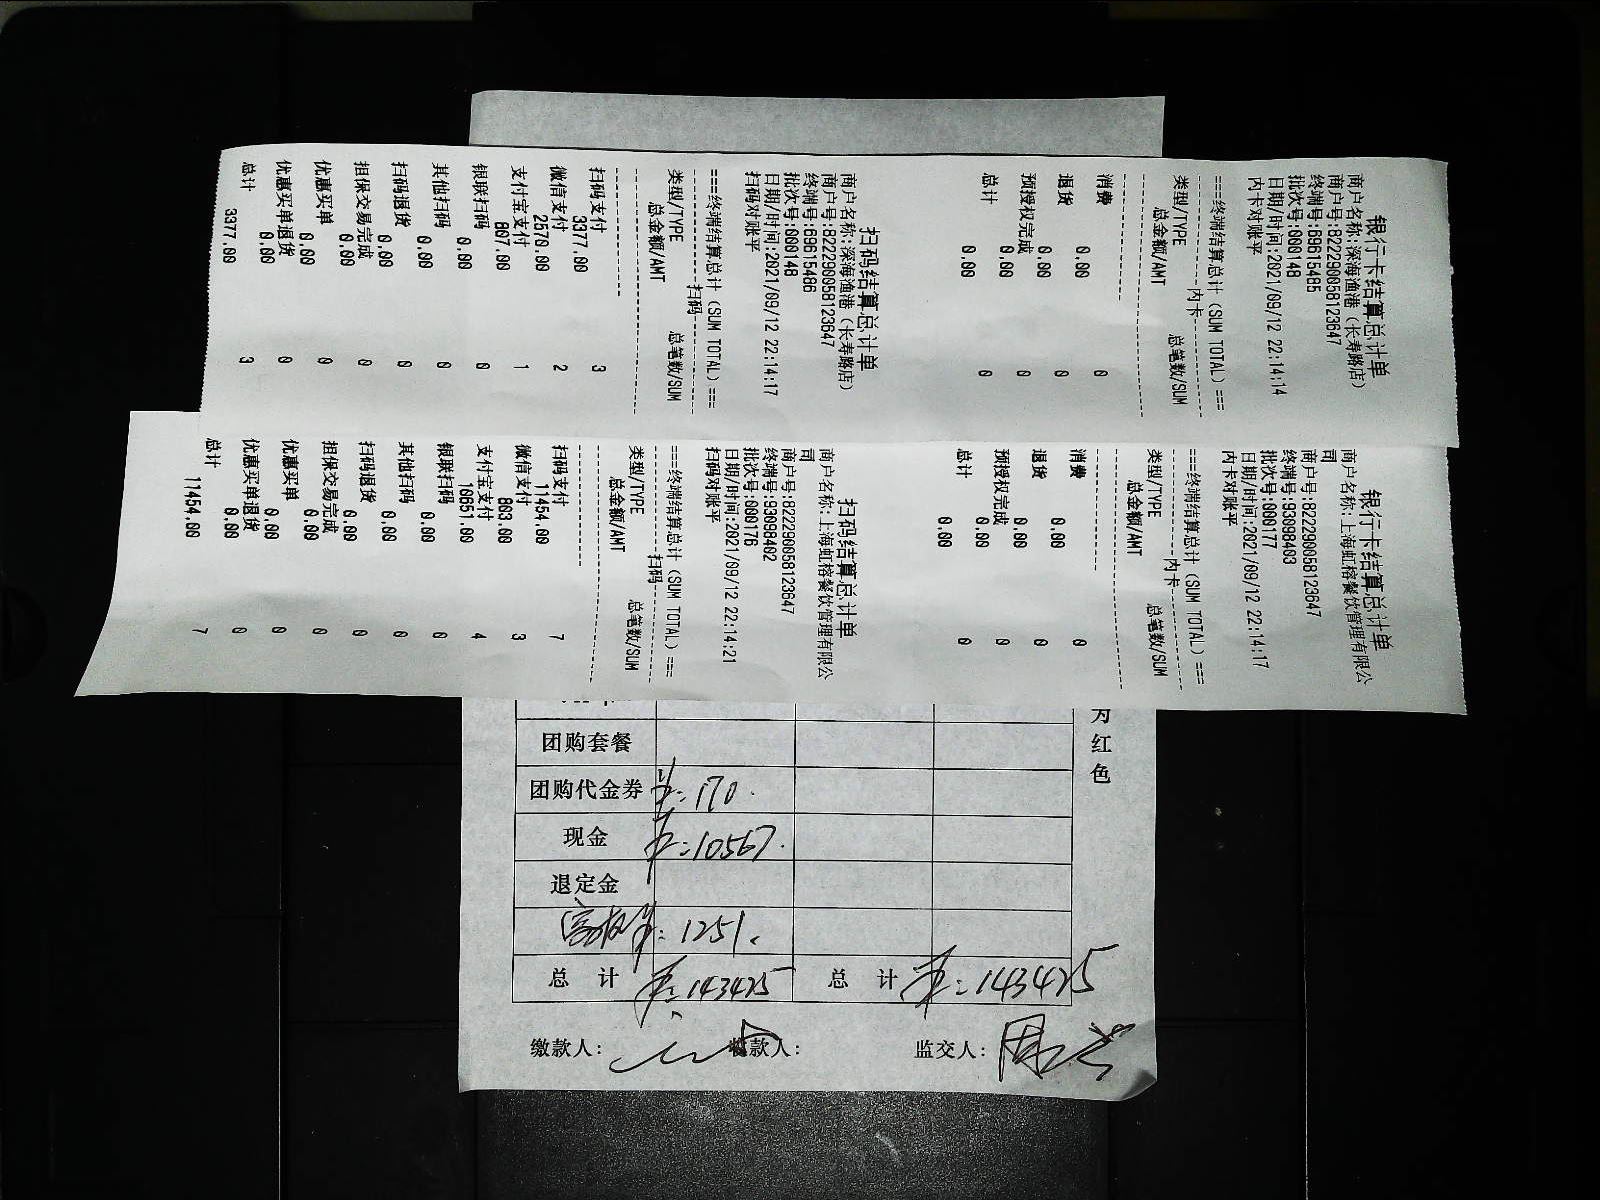 银行卡结算总计单
商户名称:深海渔港(长寿路店)
商户号:822290058123647
终端号:69615485
批次号:000148
日期/时间:2021/09/12 22:14:14
内卡对账平
===终端结算总计(SUM TOTAL)===
内卡
类型/TYPE 总笔数/SUM
总金额/AMT
消费 0
0.00
退货 0
0.00
预授权完成 0
0.00
总计 0
0.00
扫码结算总计单
商户名称:深海渔港(长寿路店)
商户号:822290058123647
终端号:69615486
批次号:000148
日期/时间:2021/09/12 22:14:17
扫码对账平
===终端结算总计(SUM TOTAL)===
扫码
类型/TYPE 总笔数/SUM
总金额/AMT
扫码支付 3
3377.00
微信支付 2
2570.00
支付宝支付 1
807.00
银联扫码 0
0.00
其他扫码 0
0.00
扫码退货 0
0.00
担保交易完成 0
0.00
优惠买单 0
0.00
优惠买单退货 0
0.00
总计 3
3377.00
银行卡结算总计单
商户名称:上海虹榕餐饮管理有限公
司
商户号:822290058123647
终端号:93098403
批次号:000177
日期/时间:2021/09/12 22:14:17
内卡对账平
===终端结算总计(SUM TOTAL)===
内卡
类型/TYPE 总笔数/SUM
总金额/AMT
消费 0
0.00
退货 0
0.00
预授权完成 0
0.00
总计 0
0.00
扫码结算总计单
商户名称:上海虹榕餐饮管理有限公
司
商户号:822290058123647
终端号:93098402
批次号:000176
日期/时间:2021/09/12 22:14:21
扫码对账平
===终端结算总计(SUM TOTAL)===
扫码
类型/TYPE 总笔数/SUM
总金额/AMT
扫码支付 7
11454.00
微信支付 3
803.00
支付宝支付 4
10651.00
银联扫码 0
0.00
其他扫码 0
0.00
扫码退货 0
0.00
担保交易完成 0
0.00
优惠买单 0
0.00
优惠买单退货 0
0.00
总计 7
11454.00
为红色
团购套餐
团购代金券 170.
现金 10567.
退定金
1251.
总 计 143425 总 计 143425
缴款人: 收款人: 监交人: